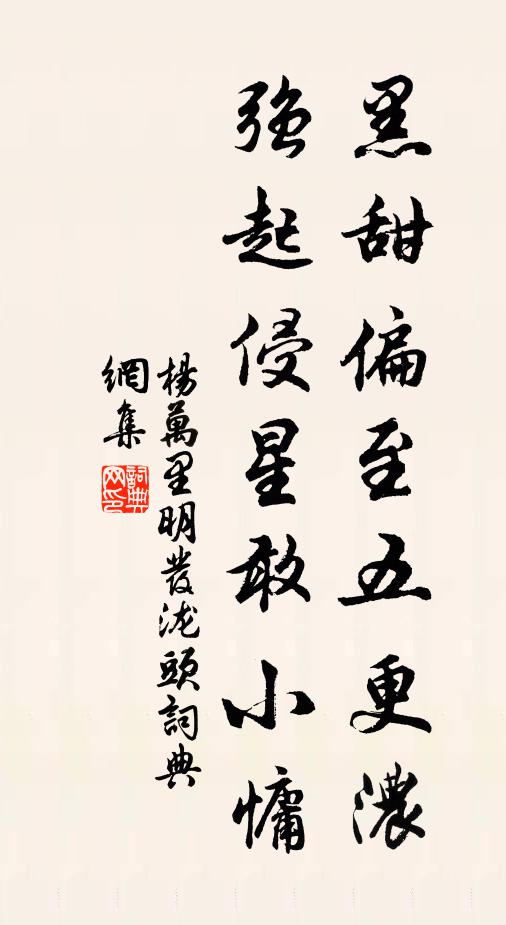 黑甜偏至五更濃
強起侵星敢小慵
楊萬里明發泷頭詞典
網集
詞典網印